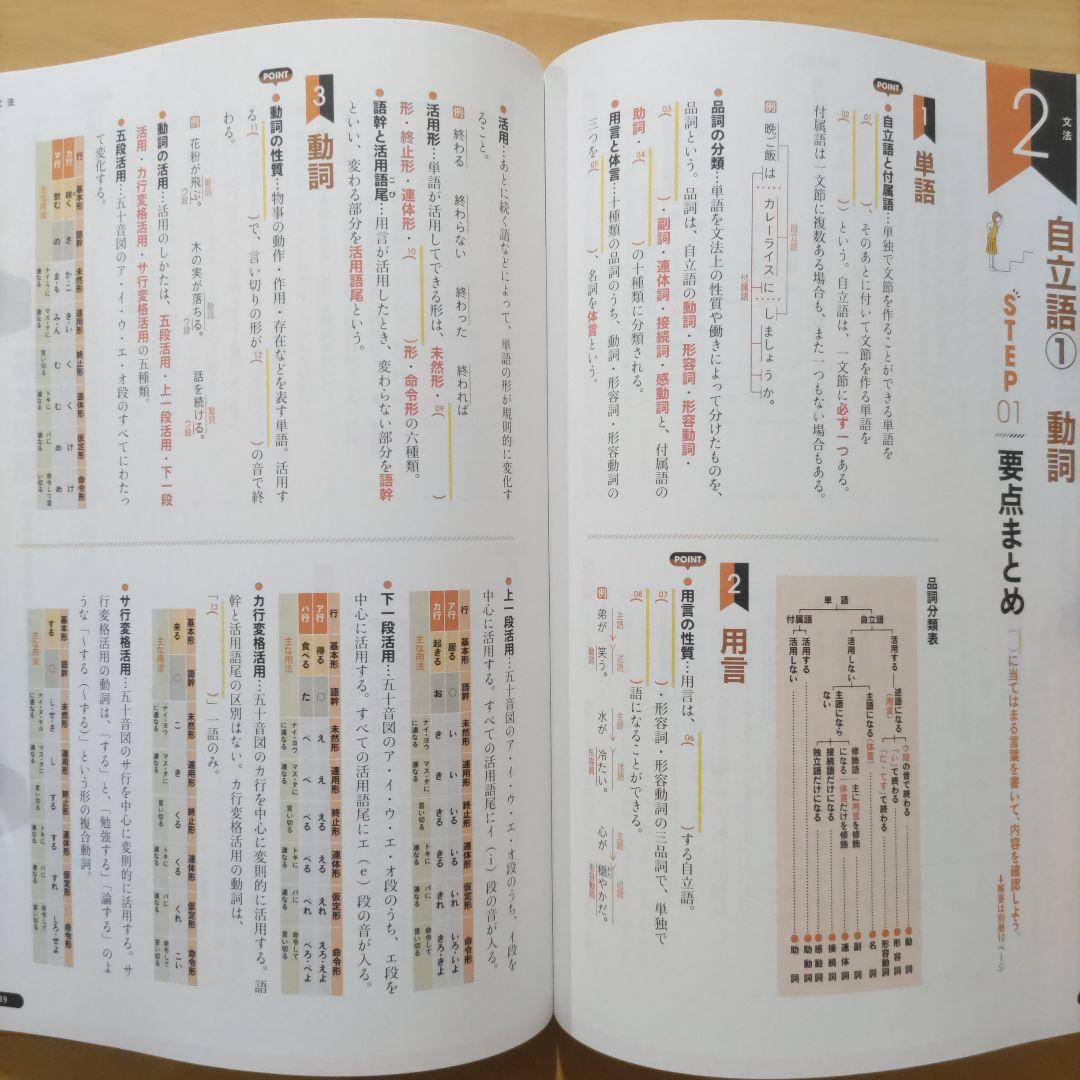 文法
2
自立語① 動詞
STEP 01 要点まとめ
( )に当てはまる言葉を書いて、内容を確認しよう。
↓解答は別冊10ページ
1 単語
POINT
●自立語と付属語…単独で文節を作ることができる単語を
01( )、そのあとに付いて文節を作る単語を
02( )という。自立語は、一文節に必ず一つある。
付属語は一文節に複数ある場合も、また一つもない場合もある。
●品詞の分類…単語を文法上の性質や働きによって分けたものを、
品詞という。品詞は、自立語の動詞・形容詞・形容動詞・
03( )・副詞・連体詞・接続詞・感動詞と、付属語の
助詞・04( )の十種類に分類される。
例 晩ご飯は カレーライスに しましょうか。
自立語
付属語
●用言と体言…十種類の品詞のうち、動詞・形容詞・形容動詞の
三つを05( )、名詞を体言という。
品詞分類表
単語
自立語
付属語
活用する
活用しない
活用する
活用しない
述語になる(用言)
主語になる(体言)
主語にならない
ウ段の音で終わる
「い」で終わる
「だ・です」で終わる
修飾語 主に用言を修飾
になる 体言だけを修飾
接続語だけになる
独立語だけになる
動詞
形容詞
形容動詞
名詞
副詞
連体詞
接続詞
感動詞
助動詞
助詞
2 用言
POINT
●用言の性質…用言は、06( )する自立語。
07( )・形容詞・形容動詞の三品詞で、単独で
08( )語になることができる。
例 弟が 笑う。 水が 冷たい。 心が 穏やかだ。
主語 述語 主語 述語 主語 述語
動詞 形容詞 形容動詞
●活用…あとに続く語などによって、単語の形が規則的に変化す
ること。
例 終わる 終わらない 終わった 終われば
●活用形…単語が活用してできる形は、未然形・09( )
形・終止形・連体形・10( )形・命令形の六種類。
●語幹と活用語尾…用言が活用したとき、変わらない部分を語幹
といい、変わる部分を活用語尾という。
3 動詞
POINT
●動詞の性質…物事の動作・作用・存在などを表す単語。活用す
る11( )で、言い切りの形が12( )の音で終
わる。
例 花粉が飛ぶ。 木の実が落ちる。 話を続ける。
動詞 動詞 動詞
ウ段 ウ段 ウ段
●動詞の活用…活用のしかたは、五段活用・上一段活用・下一段
活用・カ行変格活用・サ行変格活用の五種類。
●五段活用…五十音図のア・イ・ウ・エ・オ段のすべてにわたっ
て変化する。
行 基本形 語幹 未然形 連用形 終止形 連体形 仮定形 命令形
カ行 咲く さ か・こ き・い く く け け
マ行 飲む の ま・も み・ん む む め め
主な用法 ナイ・ウに連なる マス・タに連なる 言い切る トキに連なる バに連なる 命令して言い切る
●上一段活用…五十音図のア・イ・ウ・エ・オ段のうち、イ段を
中心に活用する。すべての活用語尾にイ(i)段の音が入る。
行 基本形 語幹 未然形 連用形 終止形 連体形 仮定形 命令形
ア行 居る ○ い い いる いる いれ いろ・いよ
カ行 起きる お き き きる きる きれ きろ・きよ
主な用法 ナイ・ヨウに連なる マス・タに連なる 言い切る トキに連なる バに連なる 命令して言い切る
●下一段活用…五十音図のア・イ・ウ・エ・オ段のうち、エ段を
中心に活用する。すべての活用語尾にエ(e)段の音が入る。
行 基本形 語幹 未然形 連用形 終止形 連体形 仮定形 命令形
ア行 得る ○ え え える える えれ えろ・えよ
バ行 食べる た べ べ べる べる べれ べろ・べよ
主な用法 ナイ・ヨウに連なる マス・タに連なる 言い切る トキに連なる バに連なる 命令して言い切る
●カ行変格活用…五十音図のカ行を中心に変則的に活用する。語
幹と活用語尾の区別はない。カ行変格活用の動詞は、
「13( )」一語のみ。
基本形 語幹 未然形 連用形 終止形 連体形 仮定形 命令形
来る ○ こ き くる くる くれ こい
主な用法 ナイ・ヨウに連なる マス・タに連なる 言い切る トキに連なる バに連なる 命令して言い切る
●サ行変格活用…五十音図のサ行を中心に変則的に活用する。サ
行変格活用の動詞は、「する」と、「勉強する」「論ずる」のよ
うな「〜する(〜ずる)」という形の複合動詞。
基本形 語幹 未然形 連用形 終止形 連体形 仮定形 命令形
する ○ し・せ・さ し する する すれ しろ・せよ
主な用法 ナイ・ヌ・セルに連なる マス・タに連なる 言い切る トキに連なる バに連なる 命令して言い切る
文法
89